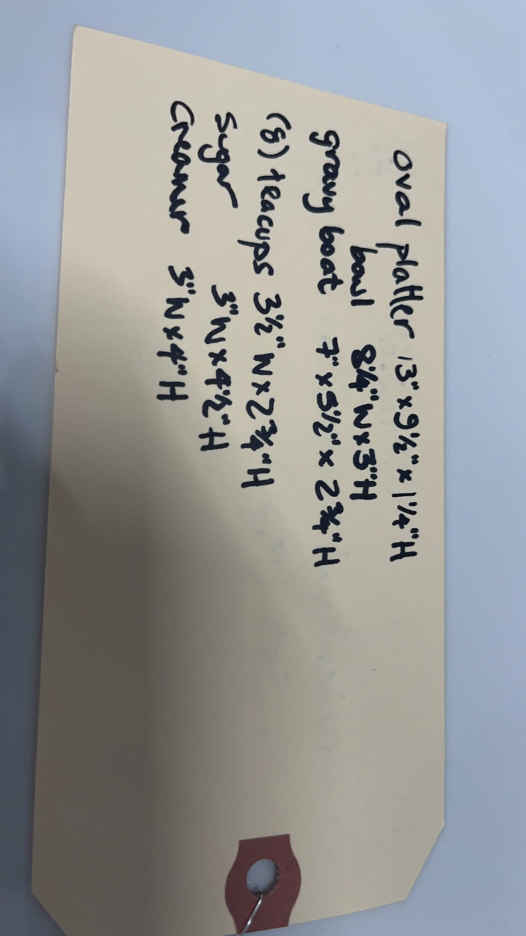 oval platter 13" x 9½" x 1¼" H
bowl 8¼" W x 3" H
gravy boat 7" x 5½" x 2¾" H
(8) teacups 3½" W x 2¾" H
Sugar 3" W x 4½" H
Creamer 3" W x 4" H